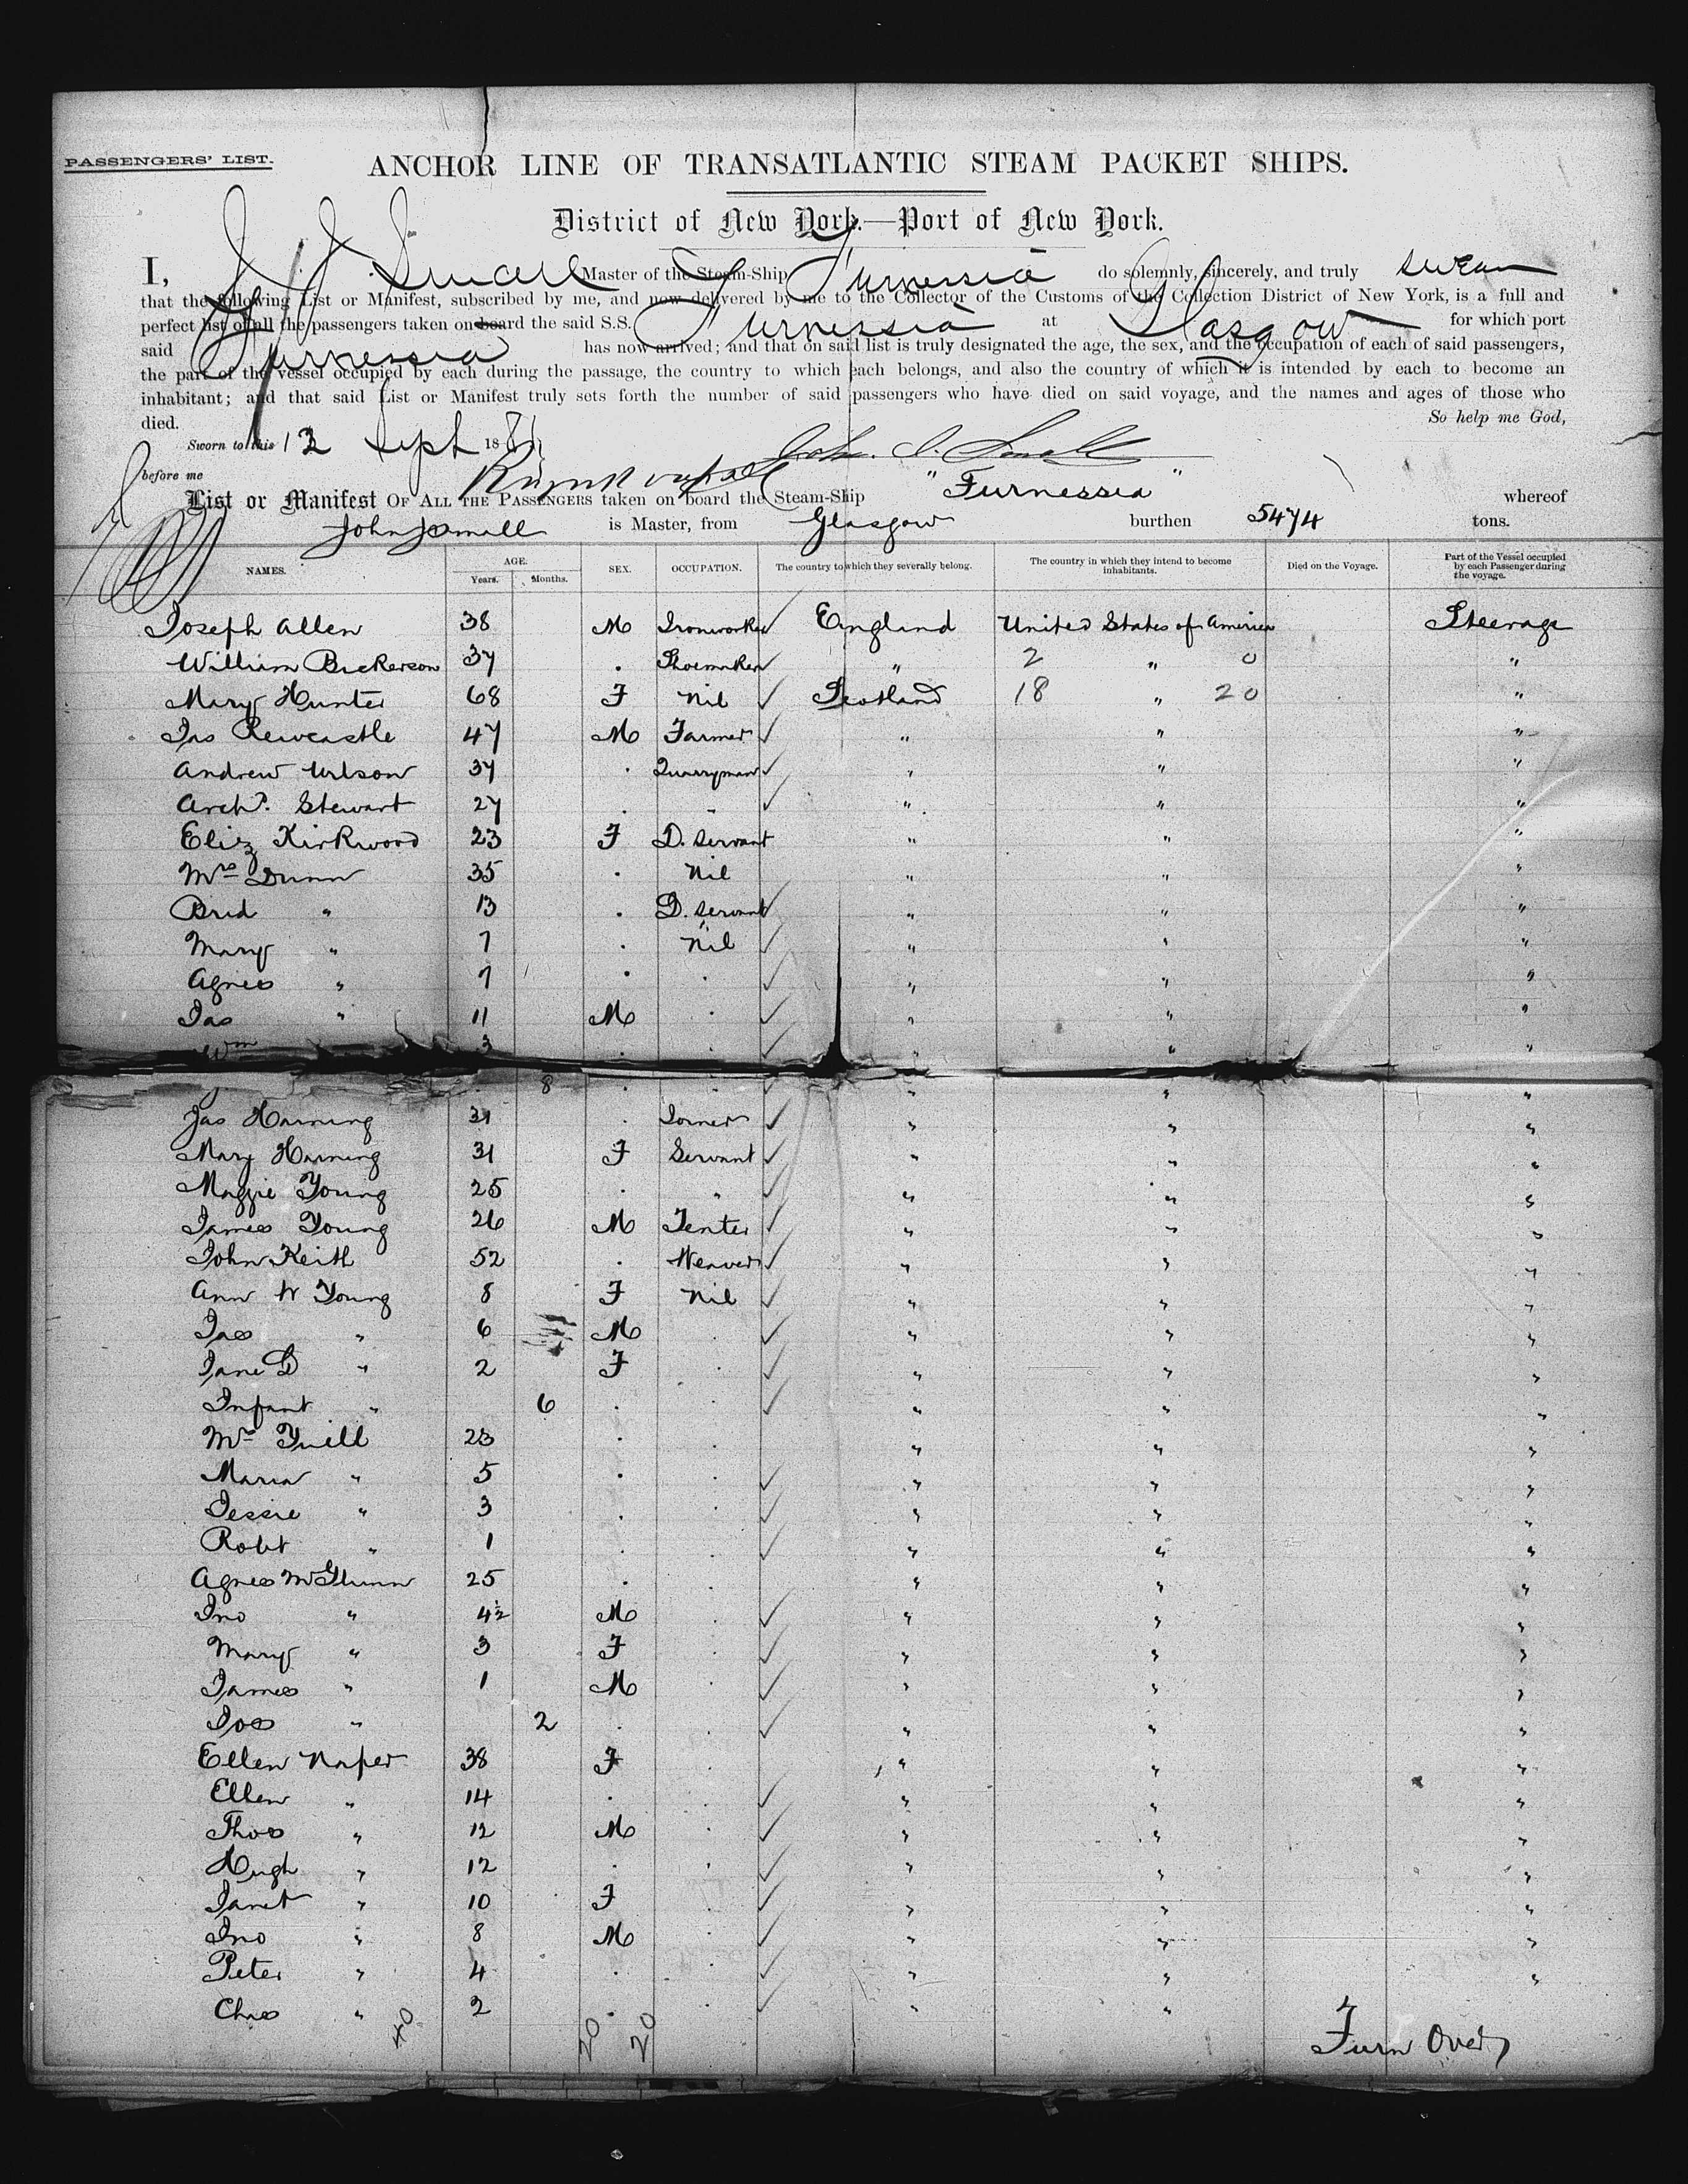 PASSENGERS' LIST.
ANCHOR LINE OF TRANSATLANTIC STEAM PACKET SHIPS.
District of New York.—Port of New York.
I, J J Small Master of the Steam-Ship Furnessia do solemnly, sincerely, and truly swear
that the following List or Manifest, subscribed by me, and now delivered by me to the Collector of the Customs of the Collection District of New York, is a full and
perfect list of all the passengers taken on board the said S.S. Furnessia at Glasgow for which port
said Furnessia has now arrived; and that on said list is truly designated the age, the sex, and the occupation of each of said passengers,
the part of the vessel occupied by each during the passage, the country to which each belongs, and also the country of which it is intended by each to become an
inhabitant; and that said List or Manifest truly sets forth the number of said passengers who have died on said voyage, and the names and ages of those who
died. So help me God,
Sworn to this 12 Sept 188
John J. Small
before me
List or Manifest OF ALL THE PASSENGERS taken on board the Steam-Ship "Furnessia" whereof
John J Small is Master, from Glasgow burthen 5474 tons.
NAMES. AGE. Years. Months. SEX. OCCUPATION. The country to which they severally belong. The country in which they intend to become inhabitants. Died on the Voyage. Part of the Vessel occupied by each Passenger during the voyage.
Joseph Allen 38 M Ironworker ✓ England United States of America Steerage
William Bickerson 37 . Shoemaker ✓ " 2 " 0 "
Mary Hunter 68 F Nil ✓ Scotland 18 " 20 "
Jas Rewcastle 47 M Farmer ✓ " " "
Andrew Wilson 37 . Quarryman ✓ " " "
Archd. Stewart 27 . " ✓ " " "
Eliz Kirkwood 23 F D. Servant " " "
Mrs Dunn 35 . Nil " " "
Brid " 13 . D. Servant ✓ " " "
Mary " 7 . Nil ✓ " " "
Agnes " 7 . . ✓ " " "
Jas " 11 M . ✓ " " "
Wm 3 . . ✓ " "
8 . . ✓ " " "
Jas Harning 31 . Joiner ✓ " " "
Mary Harning 31 F Servant ✓ " " "
Maggie Young 25 . " ✓ " " "
James Young 26 M Tenter ✓ " " "
John Keith 52 . Weaver ✓ " " "
Ann W Young 8 F Nil ✓ " " "
Jas " 6 M . ✓ " " "
Jane G " 2 F . ✓ " " "
Infant " 6 . . ✓ " " "
Mrs Tuill 23 . . " " "
Maria " 5 . . ✓ " " "
Jessie " 3 . . ✓ " " "
Robt " 1 . . ✓ " " "
Agnes McGlunn 25 . . " " "
Jno " 4½ M . ✓ " " "
Mary " 3 F . ✓ " " "
James " 1 M . ✓ " " "
Jos " 2 . . ✓ " " "
Ellen Naper 38 F . " " "
Ellen " 14 . . ✓ " " "
Thos " 12 M . ✓ " " "
Hugh " 12 . . ✓ " " "
Janet " 10 F . ✓ " " "
Jno " 8 M . ✓ " " "
Peter " 4 . . ✓ " " "
Chas " 2 . . ✓ " "
40 20 20
Turn Over